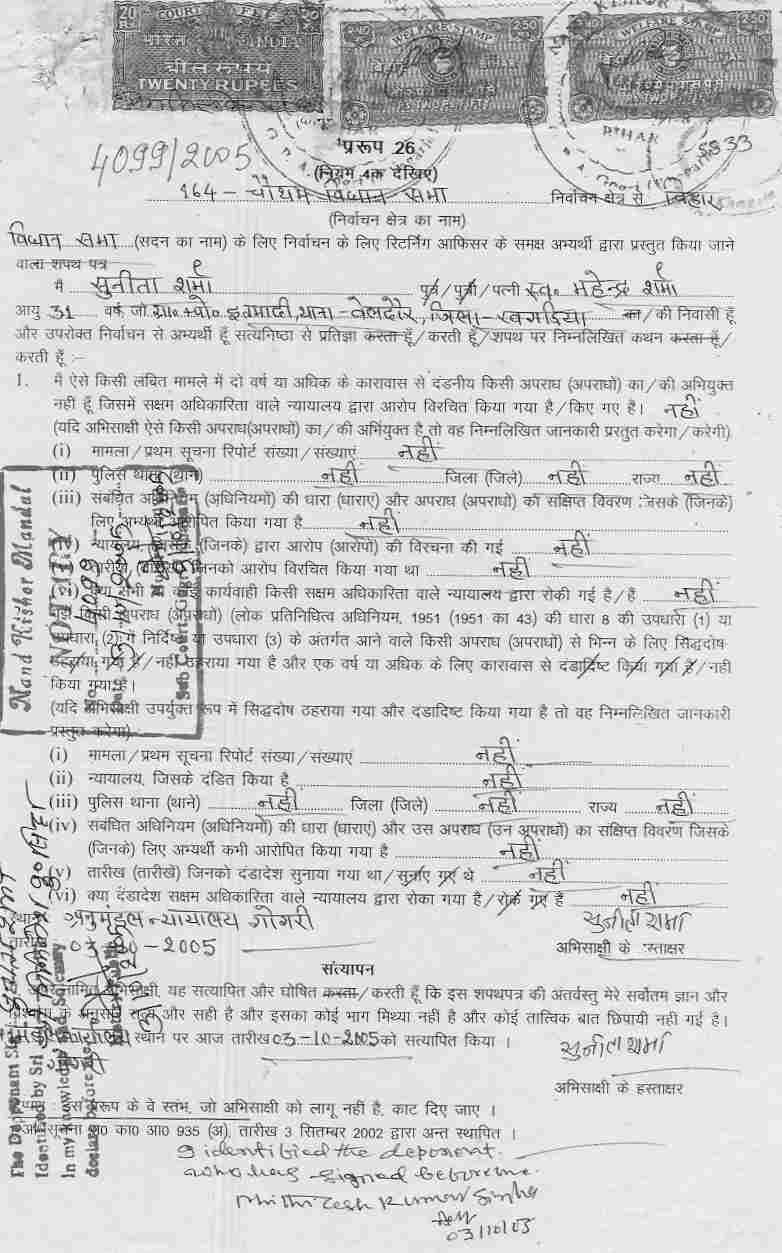 20 COURT FEE 20
भारत INDIA
बीस रूपये
TWENTY RUPEES
2.50 WELFARE STAMP 2.50
WELFARE STAMP 2.50
BIHAR
4099/2005
प्ररूप 26
(नियम 4क देखिए)
164 - चौथम विधान सभा निर्वाचन क्षेत्र से बिहार
(निर्वाचन क्षेत्र का नाम)
विधान सभा (सदन का नाम) के लिए निर्वाचन के लिए रिटर्निंग आफिसर के समक्ष अभ्यर्थी द्वारा प्रस्तुत किया जाने
वाला शपथ पत्र
मैं सुनीता शर्मा पुत्र/पुत्री/पत्नी स्व० महेन्द्र शर्मा
आयु 31 वर्ष, जो ग्रा०+पो० इतमादी, थाना-बेलदौर, जिला-खगड़िया का/की निवासी हूँ
और उपरोक्त निर्वाचन से अभ्यर्थी हूँ सत्यनिष्ठा से प्रतिज्ञा करता हूँ/करती हूँ/शपथ पर निम्नलिखित कथन करता हूँ/
करती हूँ :-
1. मैं ऐसे किसी लंबित मामले में दो वर्ष या अधिक के कारावास से दंडनीय किसी अपराध (अपराधों) का/की अभियुक्त
नहीं हूँ जिसमें सक्षम अधिकारिता वाले न्यायालय द्वारा आरोप विरचित किया गया है/किए गए है। नहीं
(यदि अभिसाक्षी ऐसे किसी अपराध(अपराधों) का/की अभियुक्त है तो वह निम्नलिखित जानकारी प्रस्तुत करेगा/करेगी)
(i) मामला/प्रथम सूचना रिपोर्ट संख्या/संख्याएं नहीं
(ii) पुलिस थाना (थाने) नहीं जिला (जिले) नहीं राज्य नहीं
(iii) संबंधित अधिनियम (अधिनियमों) की धारा (धाराएं) और अपराध (अपराधों) का संक्षिप्त विवरण जिसके (जिनके)
लिए अभ्यर्थी आरोपित किया गया है नहीं
न्यायालय (जिनके) द्वारा आरोप (आरोपों) की विरचना की गई नहीं
जिनको आरोप विरचित किया गया था नहीं
कार्यवाही किसी सक्षम अधिकारिता वाले न्यायालय द्वारा रोकी गई है/है नहीं
किसी अपराध (अपराधों) (लोक प्रतिनिधित्व अधिनियम, 1951 (1951 का 43) की धारा 8 की उपधारा (1) या
उपधारा (2) में निर्दिष्ट या उपधारा (3) के अंतर्गत आने वाले किसी अपराध (अपराधों) से भिन्न के लिए सिद्धदोष
ठहराया गया है/नहीं ठहराया गया है और एक वर्ष या अधिक के लिए कारावास से दंडादिष्ट किया गया है/नहीं
किया गया है।
(यदि अभिसाक्षी उपर्युक्त रूप में सिद्धदोष ठहराया गया और दंडादिष्ट किया गया है तो वह निम्नलिखित जानकारी
प्रस्तुत करेगा)
(i) मामला/प्रथम सूचना रिपोर्ट संख्या/संख्याएं नहीं
(ii) न्यायालय, जिसके दंडित किया है नहीं
(iii) पुलिस थाना (थाने) नहीं जिला (जिले) नहीं राज्य नहीं
(iv) संबंधित अधिनियम (अधिनियमों) की धारा (धाराएं) और उस अपराध (उन अपराधों) का संक्षिप्त विवरण जिसके
(जिनके) लिए अभ्यर्थी कभी आरोपित किया गया है नहीं
(v) तारीख (तारीखे) जिनको दंडादेश सुनाया गया था/सुनाए गए थे नहीं
(vi) क्या दंडादेश सक्षम अधिकारिता वाले न्यायालय द्वारा रोका गया है/रोके गए है नहीं
अनुमंडल न्यायालय गोगरी सुनीता शर्मा
03-10-2005 अभिसाक्षी के हस्ताक्षर
सत्यापन
यह सत्यापित और घोषित करता/करती हूँ कि इस शपथपत्र की अंतर्वस्तु मेरे सर्वोतम ज्ञान और
सत्य और सही है और इसका कोई भाग मिथ्या नहीं है और कोई तात्विक बात छिपायी नहीं गई है।
स्थान पर आज तारीख 03-10-2005 को सत्यापित किया ।
गोगरी
सुनीता शर्मा
अभिसाक्षी के हस्ताक्षर
प्ररूप के वे स्तंभ, जो अभिसाक्षी को लागू नहीं है, काट दिए जाए ।
का० आ० 935 (अ), तारीख 3 सितम्बर 2002 द्वारा अन्त स्थापित ।
I identified the deponent
who has signed before me.
Mithilesh Kumar Singha
03/10/05
Nand Kishor Mandal
NOTARY
The Deponent
Identified by Sri
In my knowledge
declare before me